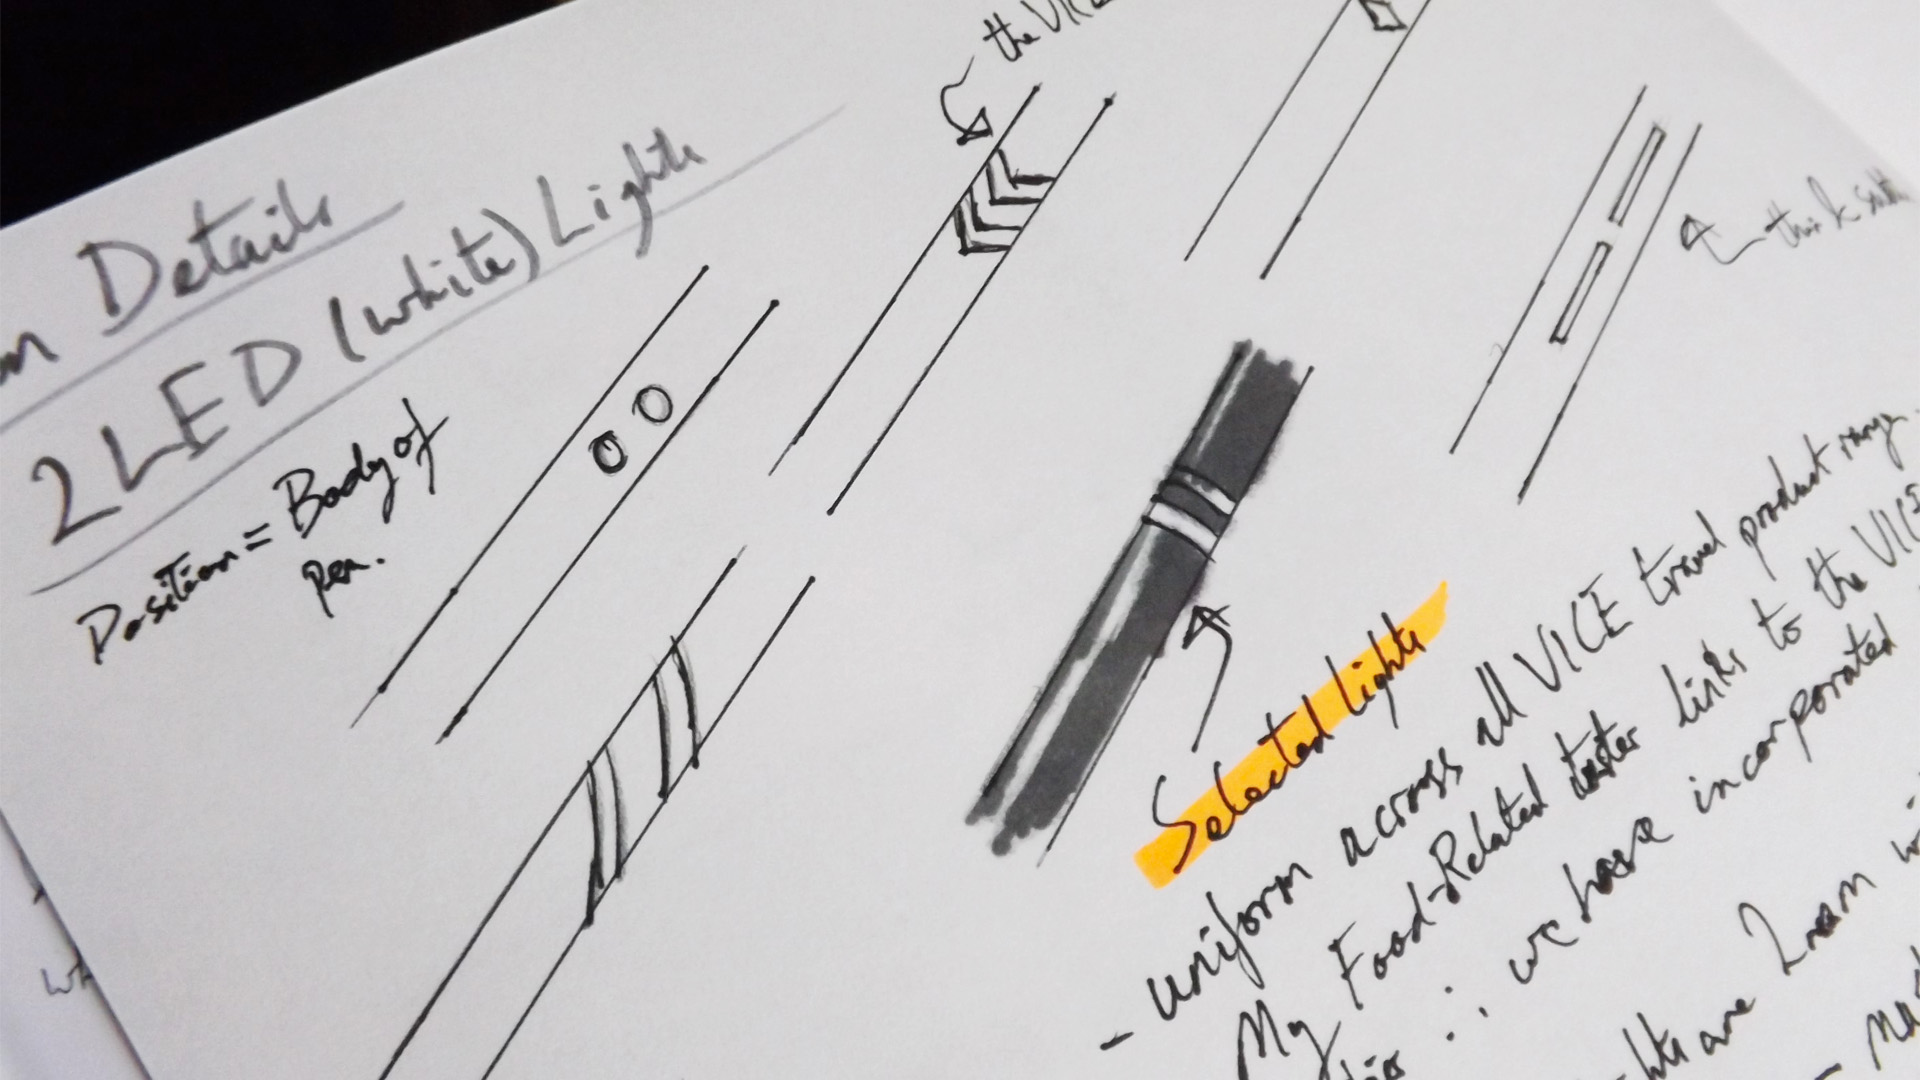 Details
2 LED (white) Lights
Position = Body of
pen.
the VICE
think
Selected Lights
- uniform across all VICE travel product range.
My Food-Related tester links to the VICE
∴ we have incorporated
are 2mm